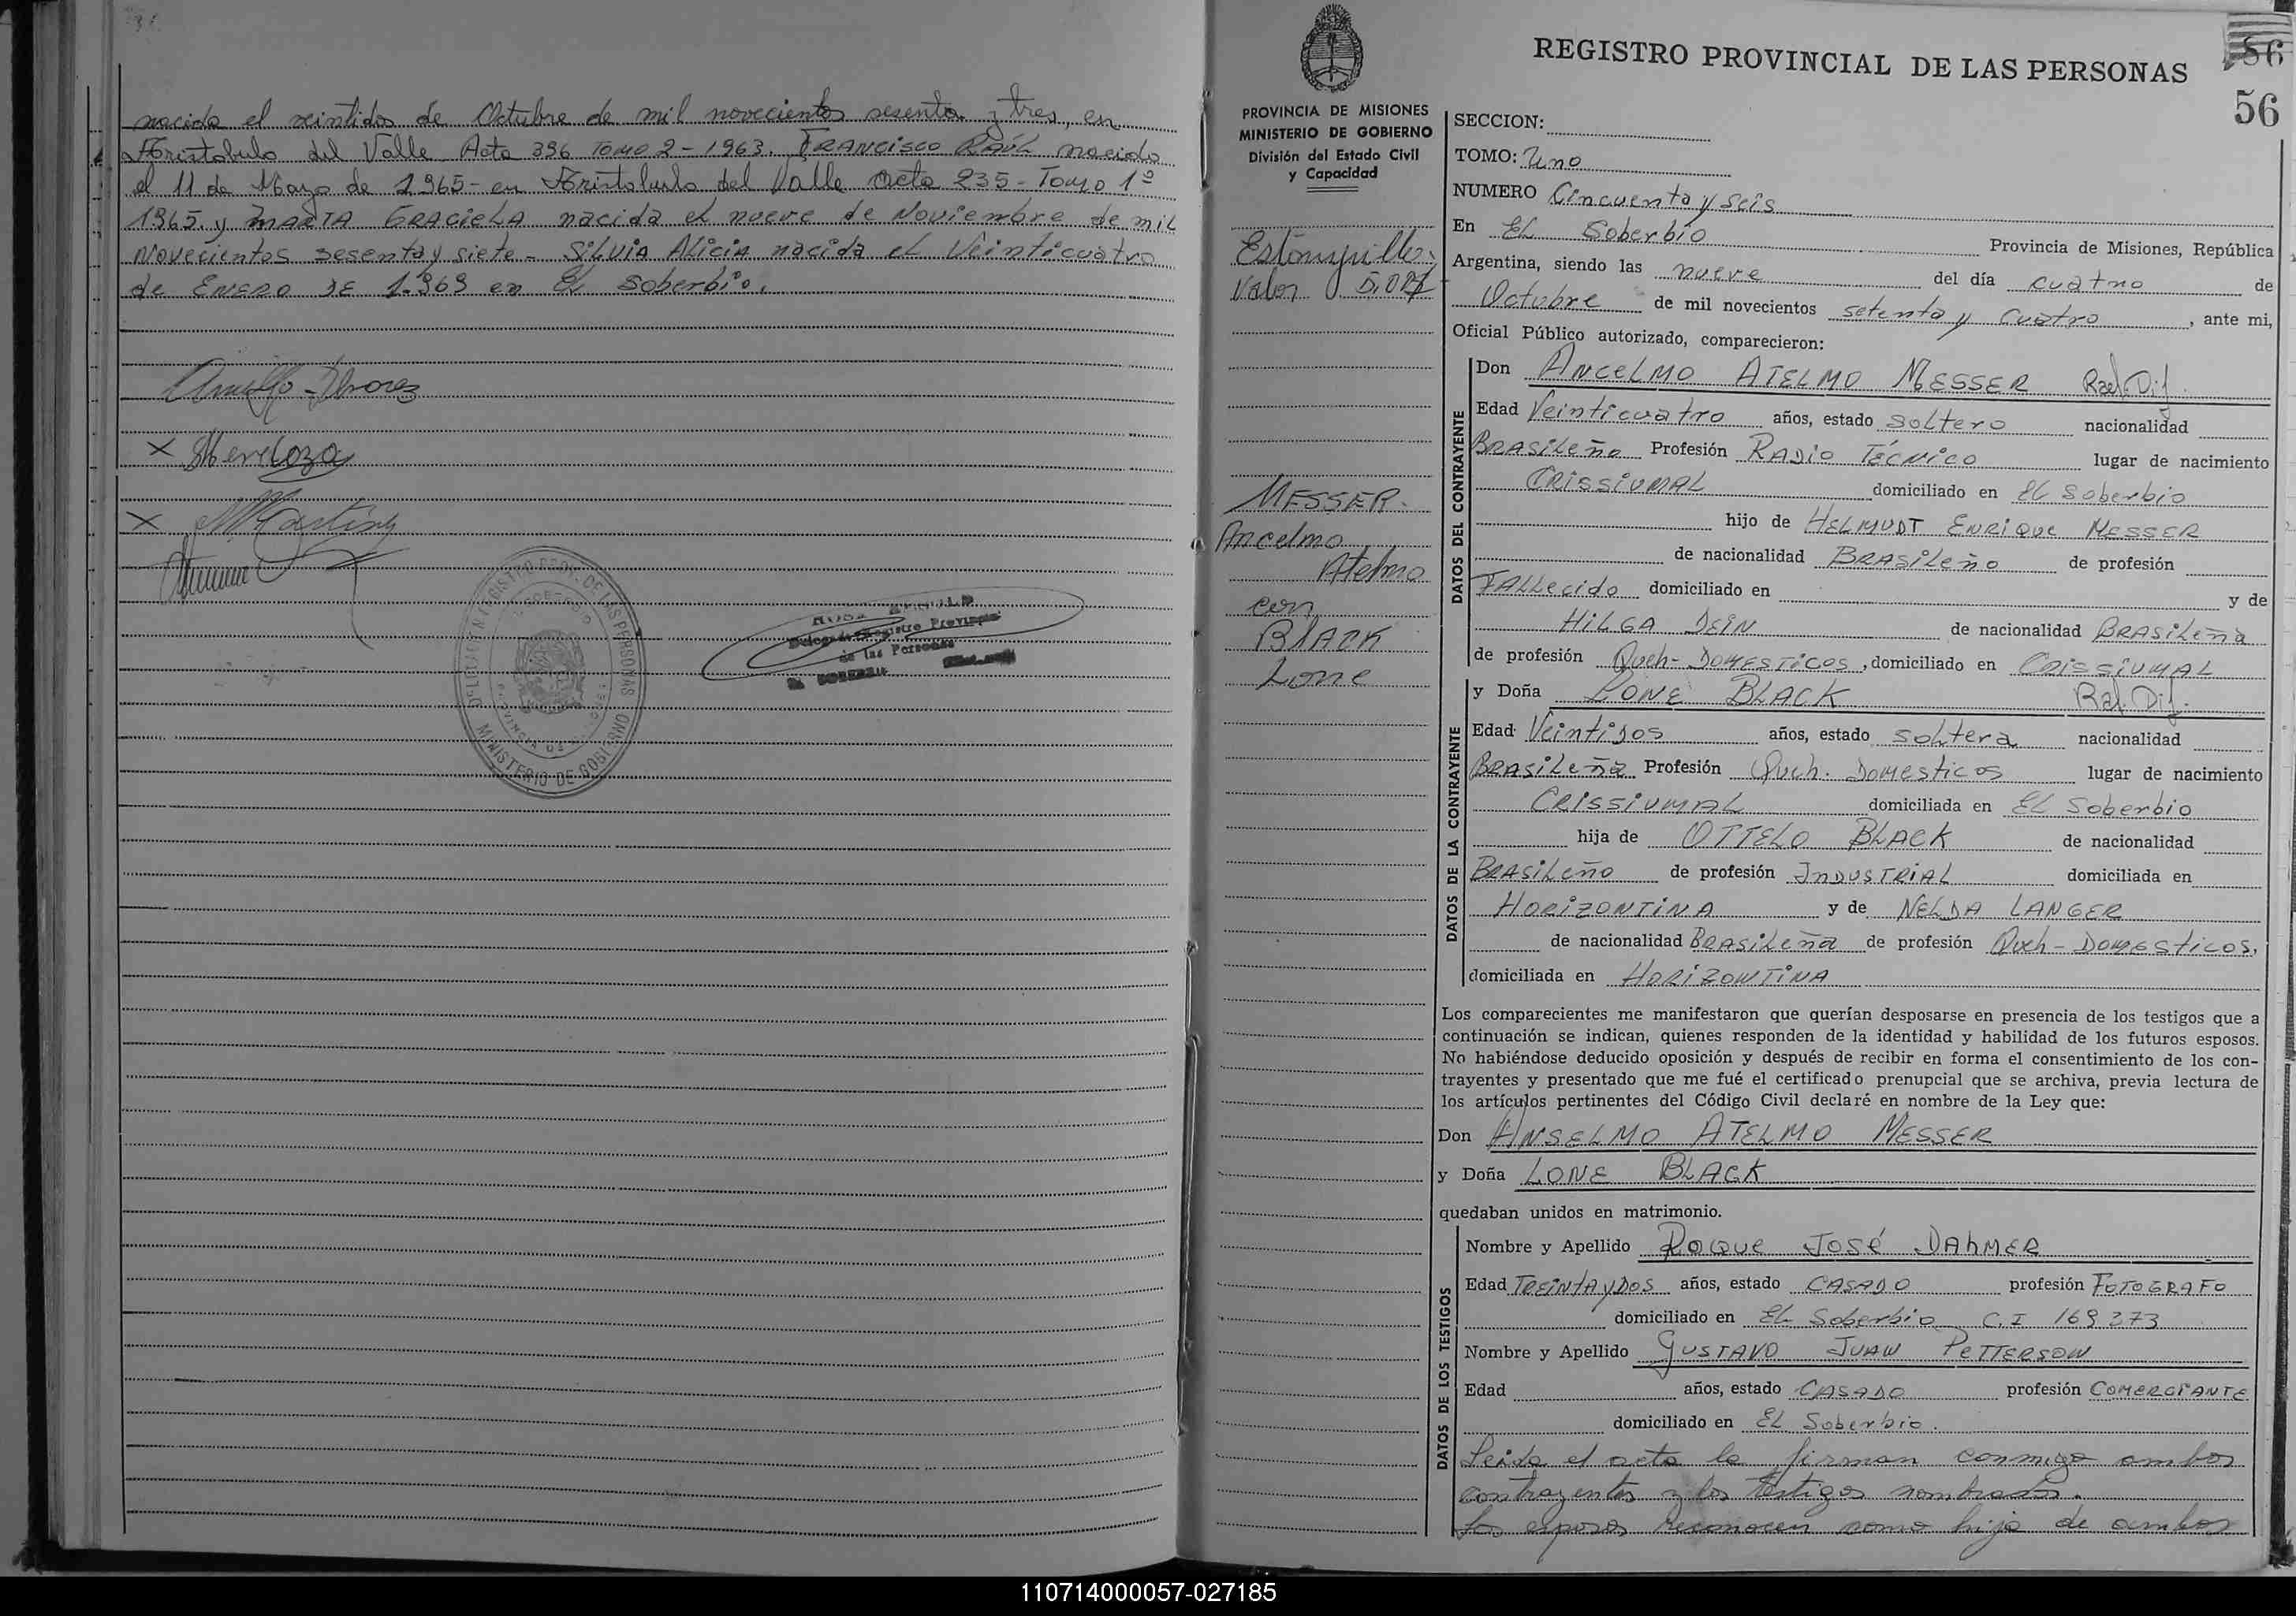 nacida el veintidos de Octubre de mil novecientos sesenta y tres, en
Aristobulo del Valle Acta 396 Tomo 2 - 1963. FRANCISCO RAÚL nacido
el 11 de Mayo de 1965 - en Aristobulo del Valle Acta 235 - Tomo 1º
1965. y MARTA GRACIELA nacida el nueve de Noviembre de mil
Novecientos sesenta y siete - SILVIA ALICIA nacida el Veinticuatro
de ENERO DE 1.969 en El Soberbio.
X
X
DELEGACION REGISTRO PROV. DE LAS PERSONAS
MINISTERIO DE GOBIERNO
Registro Provincial
de las Personas
EL SOBERBIO
REGISTRO PROVINCIAL DE LAS PERSONAS
56
56
PROVINCIA DE MISIONES
MINISTERIO DE GOBIERNO
División del Estado Civil
y Capacidad
Estampillo:
Valor
MESSER.
Ancelmo
Atelmo
con
BLACK
Lone
SECCION:
TOMO: Uno
NUMERO Cincuenta y seis
En EL Soberbio Provincia de Misiones, República
Argentina, siendo las nueve del día cuatro de
Octubre de mil novecientos setenta y cuatro, ante mi,
Oficial Público autorizado, comparecieron:
DATOS DEL CONTRAYENTE
Don ANCELMO ATELMO MESSER
Edad Veinticuatro años, estado soltero nacionalidad
BRASILEÑO Profesión RADIO TÉCNICO lugar de nacimiento
CRISSIUMAL domiciliado en EL Soberbio
hijo de HELMUDT ENRIQUE MESSER
de nacionalidad BRASILEÑO de profesión
FALLECIDO domiciliado en y de
HILGA DEIN de nacionalidad BRASILEÑA
de profesión Queh-DOMESTICOS, domiciliado en CRISSIUMAL
DATOS DE LA CONTRAYENTE
y Doña LONE BLACK
Edad Veintidos años, estado soltera nacionalidad
BRASILEÑA Profesión Queh. Domesticos lugar de nacimiento
CRISSIUMAL domiciliada en EL Soberbio
hija de OTTELO BLACK de nacionalidad
BRASILEÑO de profesión INDUSTRIAL domiciliada en
HORIZONTINA y de NELDA LANGER
de nacionalidad BRASILEÑA de profesión Queh-DOMESTICOS,
domiciliada en HORIZONTINA
Los comparecientes me manifestaron que querían desposarse en presencia de los testigos que a
continuación se indican, quienes responden de la identidad y habilidad de los futuros esposos.
No habiéndose deducido oposición y después de recibir en forma el consentimiento de los con-
trayentes y presentado que me fué el certificado prenupcial que se archiva, previa lectura de
los artículos pertinentes del Código Civil declaré en nombre de la Ley que:
Don ANSELMO ATELMO MESSER
y Doña LONE BLACK
quedaban unidos en matrimonio.
DATOS DE LOS TESTIGOS
Nombre y Apellido ROQUE JOSÉ DAHMER
Edad TREINTA Y DOS años, estado CASADO profesión FOTOGRAFO
domiciliado en EL Soberbio C.I 169373
Nombre y Apellido GUSTAVO JUAN PETTERSON
Edad años, estado CASADO profesión COMERCIANTE
domiciliado en EL Soberbio.
Leida el acta la firman conmigo ambos
contrayentes y los testigos nombrados.
Los esposos reconocen como hijo de ambos
110714000057-027185